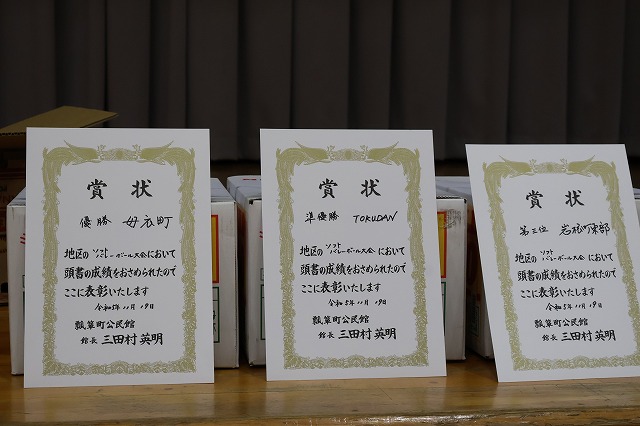 賞状
優勝 母衣町
地区の ソフトバレーボール大会 において
頭書の成績をおさめられたので
ここに表彰いたします
令和5年11月19日
瓢箪町公民館
館長 三田村英明
賞状
準優勝 TOKUDAN
地区の ソフトバレーボール大会 において
頭書の成績をおさめられたので
ここに表彰いたします
令和5年11月19日
瓢箪町公民館
館長 三田村英明
賞状
第三位 岩根町東部
地区の ソフトバレーボール大会 において
頭書の成績をおさめられたので
ここに表彰いたします
令和5年11月19日
瓢箪町公民館
館長 三田村英明